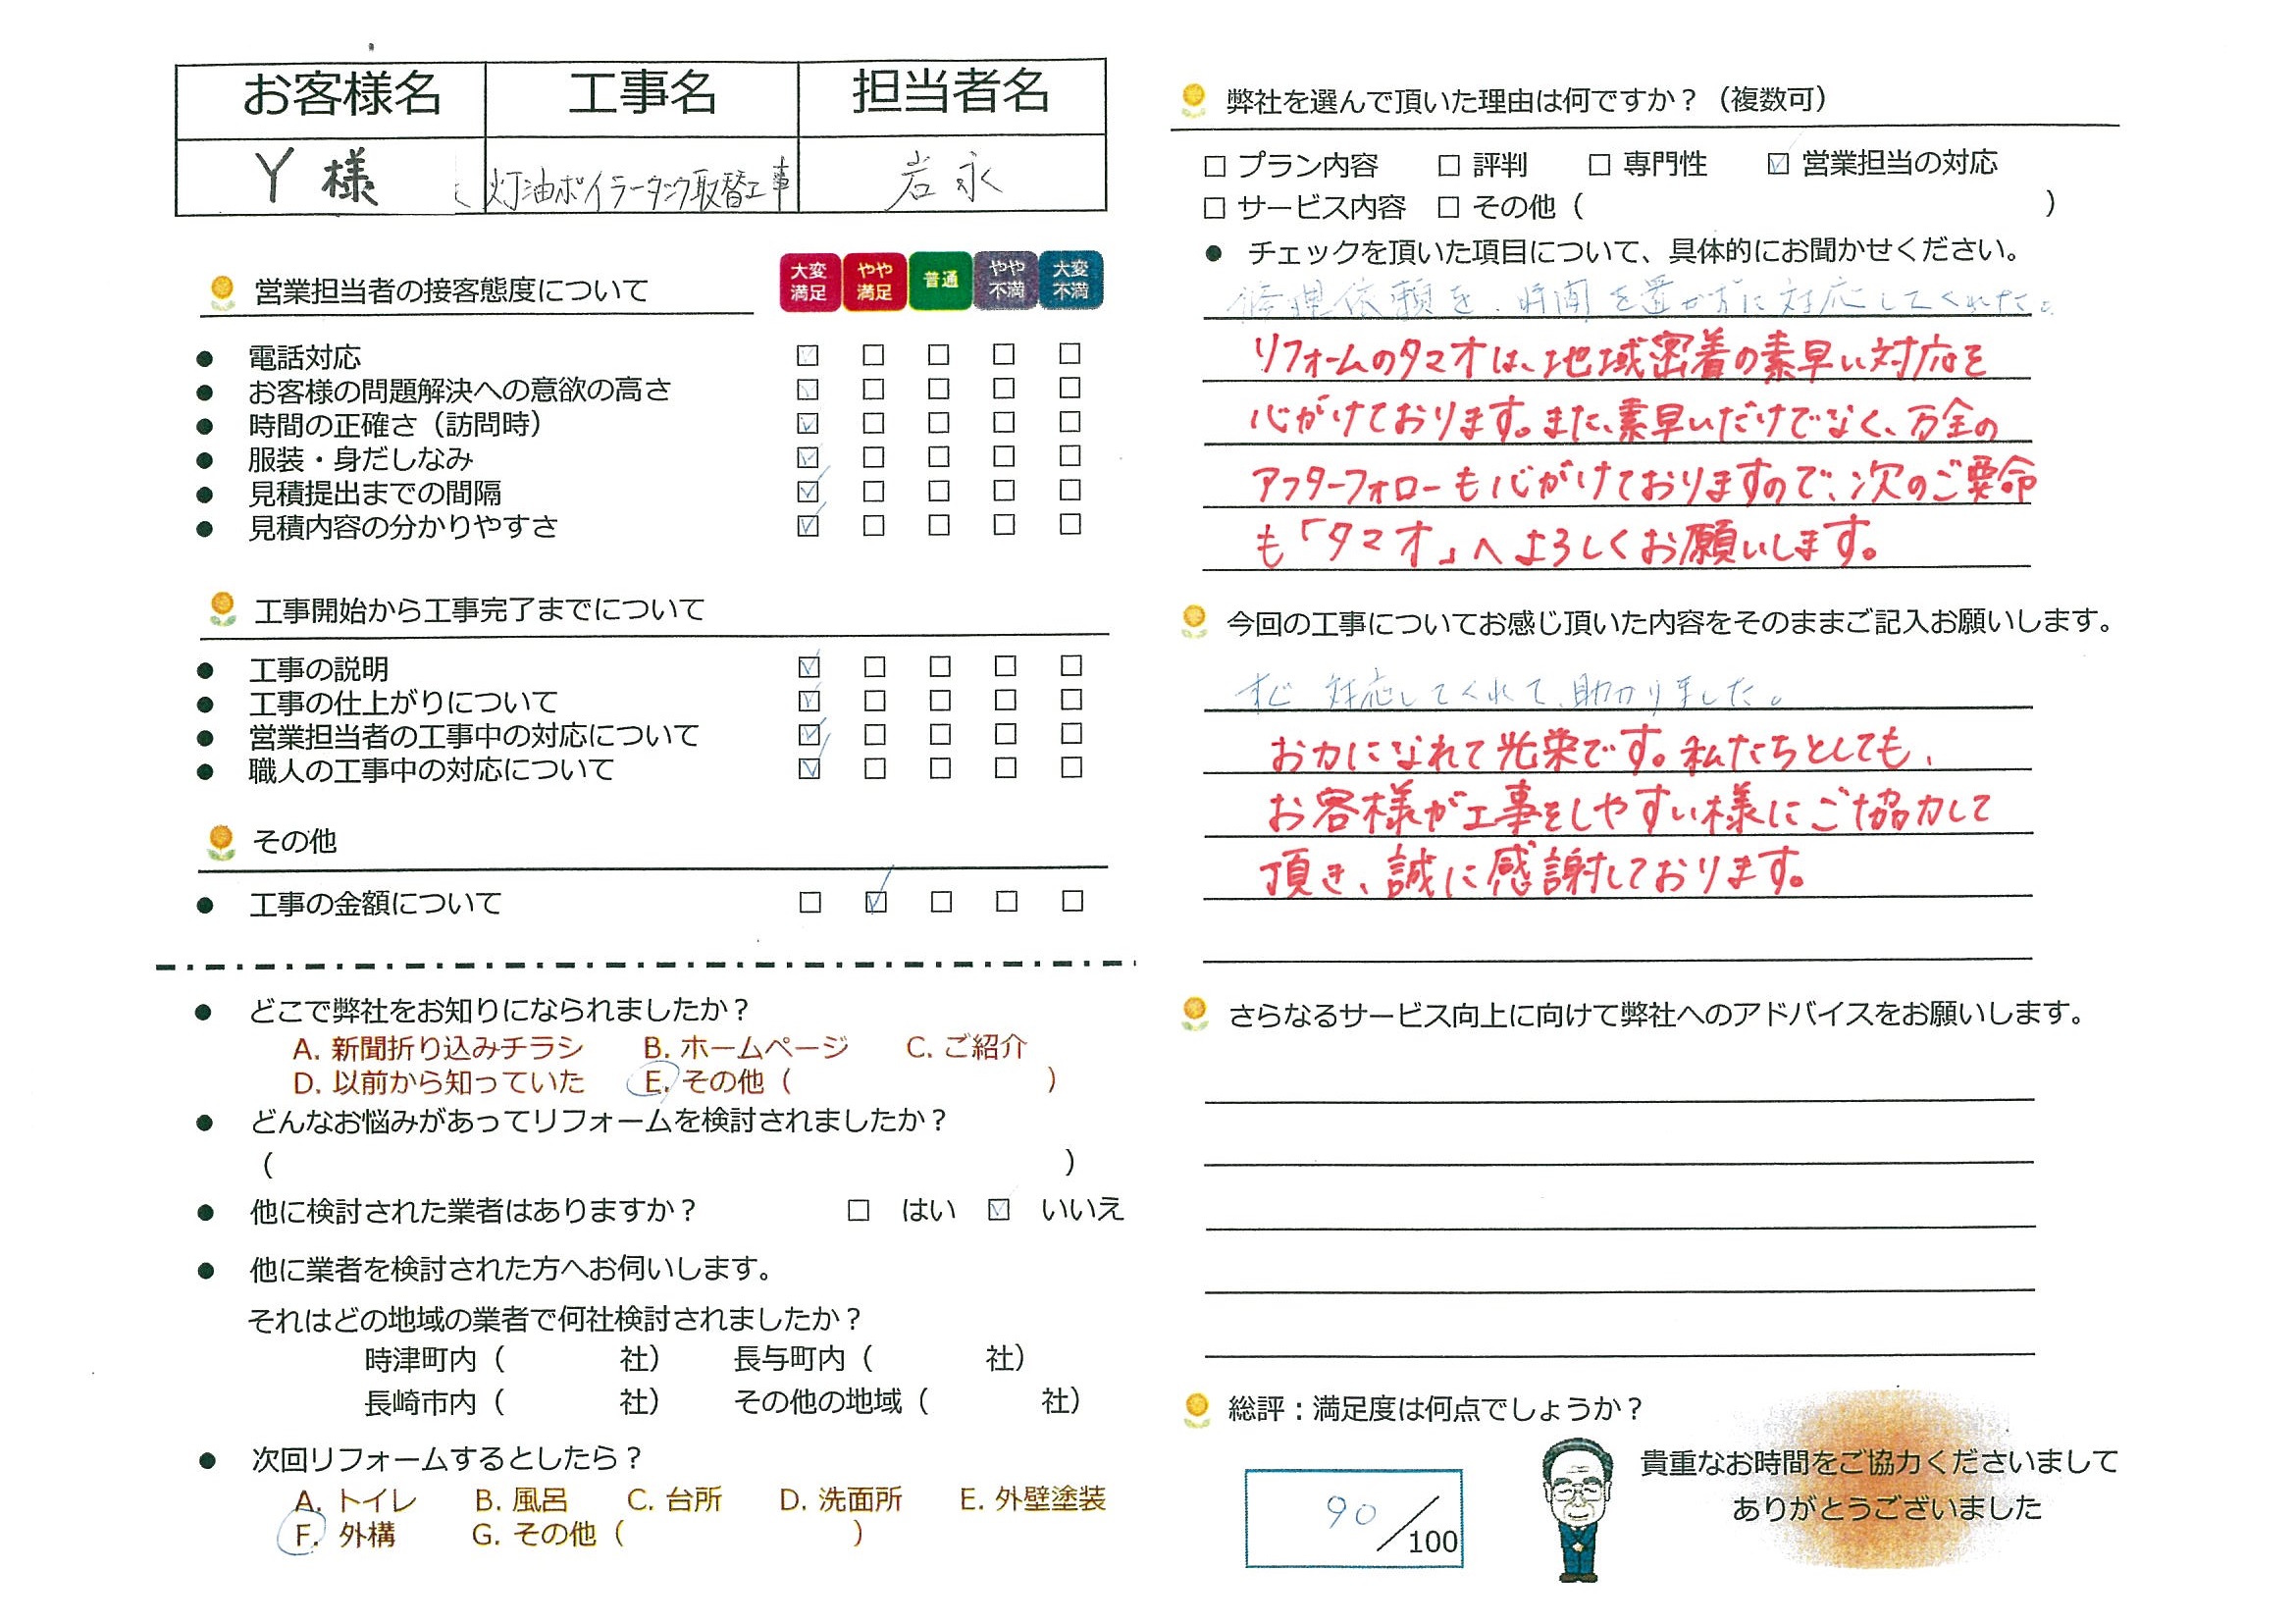 お客様名 工事名 担当者名
Y様 灯油ボイラータンク取替工事 岩永
営業担当者の接客態度について
大変満足 やや満足 普通 やや不満 大変不満
● 電話対応 ☑ □ □ □ □
● お客様の問題解決への意欲の高さ ☑ □ □ □ □
● 時間の正確さ（訪問時） ☑ □ □ □ □
● 服装・身だしなみ ☑ □ □ □ □
● 見積提出までの間隔 ☑ □ □ □ □
● 見積内容の分かりやすさ ☑ □ □ □ □
工事開始から工事完了までについて
● 工事の説明 ☑ □ □ □ □
● 工事の仕上がりについて ☑ □ □ □ □
● 営業担当者の工事中の対応について ☑ □ □ □ □
● 職人の工事中の対応について ☑ □ □ □ □
その他
● 工事の金額について □ ☑ □ □ □
● どこで弊社をお知りになられましたか？
A. 新聞折り込みチラシ B. ホームページ C. ご紹介
D. 以前から知っていた E. その他（ ）
● どんなお悩みがあってリフォームを検討されましたか？
（ ）
● 他に検討された業者はありますか？ □ はい ☑ いいえ
● 他に業者を検討された方へお伺いします。
それはどの地域の業者で何社検討されましたか？
時津町内（ 社） 長与町内（ 社）
長崎市内（ 社） その他の地域（ 社）
● 次回リフォームするとしたら？
A. トイレ B. 風呂 C. 台所 D. 洗面所 E. 外壁塗装
F. 外構 G. その他（ ）
弊社を選んで頂いた理由は何ですか？（複数可）
□ プラン内容 □ 評判 □ 専門性 ☑ 営業担当の対応
□ サービス内容 □ その他（ ）
● チェックを頂いた項目について、具体的にお聞かせください。
修理依頼を、時間を置かずに対応してくれた。
リフォームのタマオは、地域密着の素早い対応を
心がけております。また、素早いだけでなく、万全の
アフターフォローも心がけておりますので、次のご要命
も「タマオ」へよろしくお願いします。
今回の工事についてお感じ頂いた内容をそのままご記入お願いします。
すぐ対応してくれて、助かりました。
お力になれて光栄です。私たちとしても、
お客様が工事をしやすい様にご協力して
頂き、誠に感謝しております。
さらなるサービス向上に向けて弊社へのアドバイスをお願いします。
総評：満足度は何点でしょうか？
90／100
貴重なお時間をご協力くださいまして
ありがとうございました